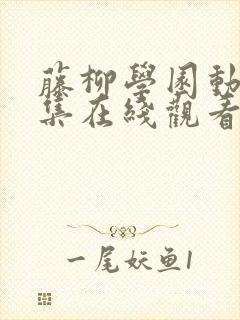 藤柳學園動
集在綫觀看
一尾妖鱼1